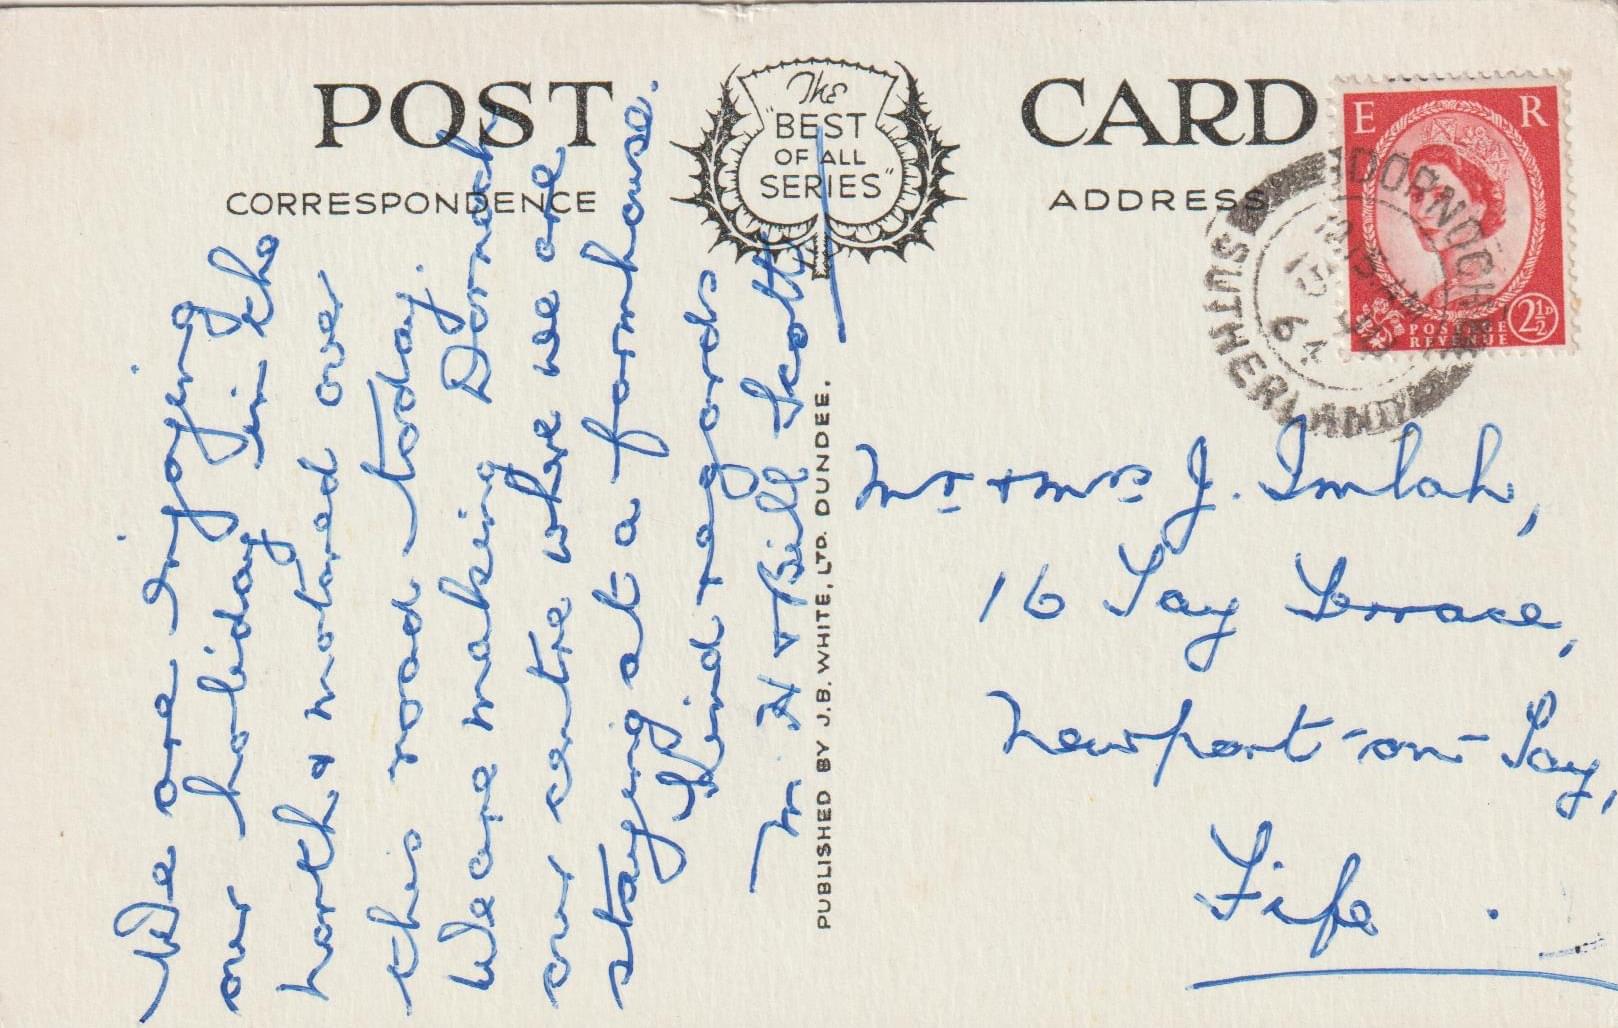 POST CARD
CORRESPONDENCE
ADDRESS
The
"BEST
OF ALL
SERIES"
E R
POSTAGE
REVENUE
2½D
DORNOCH
SUTHERLAND
We are enjoying
our holiday in the
north & motored over
this road today.
We are making Dornoch
our centre where we are
staying at a farmhouse.
Kind regards
M. H & Bill Scott
PUBLISHED BY J.B. WHITE, LTD. DUNDEE.
Mr & Mrs J. Imlah,
16 Tay Terrace,
Newport-on-Tay,
Fife.